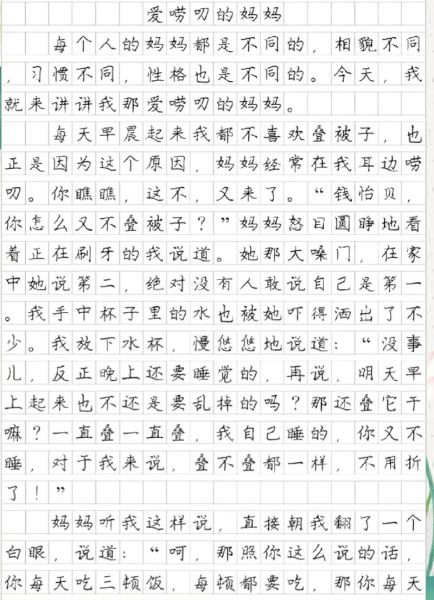 爱唠叨的妈妈
每个人的妈妈都是不同的，相貌不同
，习惯不同，性格也是不同的。今天，我
就来讲讲我那爱唠叨的妈妈。
每天早晨起来我都不喜欢叠被子，也
正是因为这个原因，妈妈经常在我耳边唠
叨。你瞧瞧，这不，又来了。“钱怡贝，
你怎么又不叠被子？”妈妈怒目圆睁地看
着正在刷牙的我说道。她那大嗓门，在家
中她说第二，绝对没有人敢说自己是第一
。我手中杯子里的水也被她吓得洒出了不
少。我放下水杯，慢悠悠地说道：“没事
儿，反正晚上还要睡觉的，再说，明天早
上起来也不还是要乱掉的吗？那还叠它干
嘛？一直叠一直叠，我自己睡的，你又不
睡，对于我来说，叠不叠都一样，不用折
了！”
妈妈听我这样说，直接朝我翻了一个
白眼，说道：“呵，那照你这么说的话，
你每天吃三顿饭，每顿都要吃，那你每天